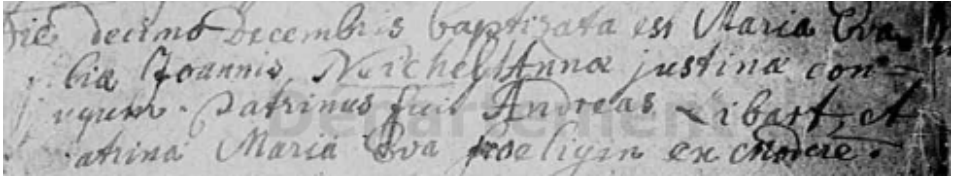 Die decimo Decembris baptizata est Maria Eva
lia Joannis Neichel Annæ justinæ con=
ugum. Patrinus fuit Andreas Libart, et
atrina Maria Eva froeligin ex